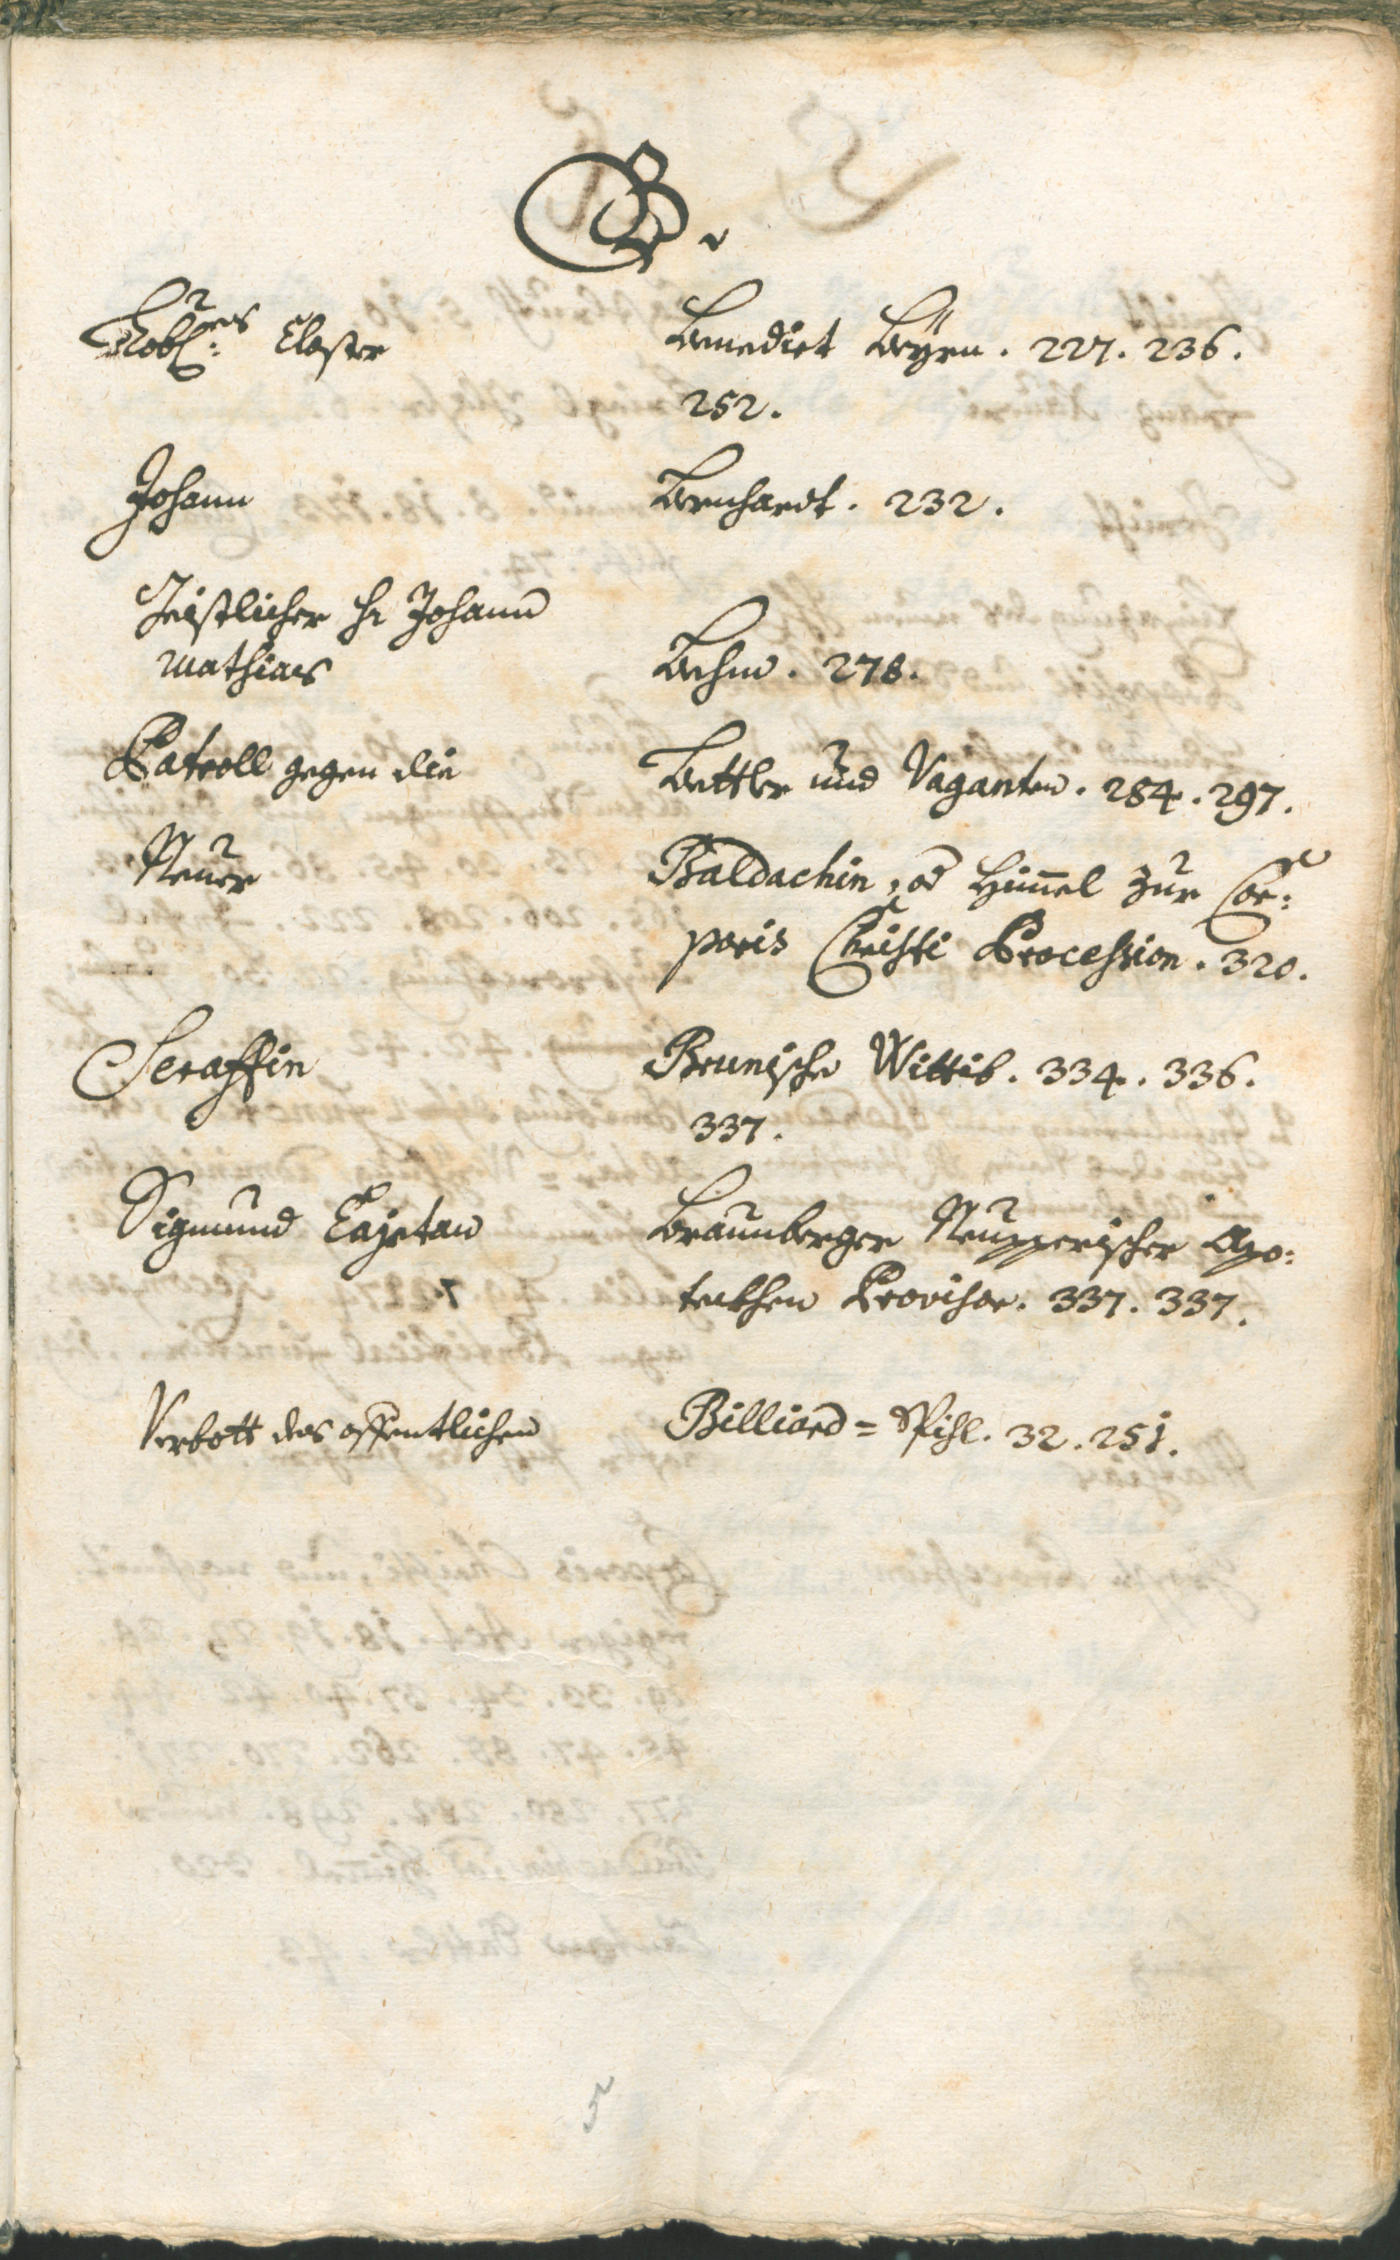 B.
Lobl:es Closter Benedict Beÿrn. 227. 236.
252.
Johann Bernhardt. 232.
Geistlicher Hr Johann
Mathias Behm. 278.
Patroll gegen die Bettler und Vaganten. 284. 297.
Neuer Baldachin, od Himel zur Cor:
poris Christi Procession. 320.
Seraffin Brunische Wittib. 334. 336.
337.
Sigmund Cajetan Braunberger Neupperischer Apo:
teckhen Provisor. 337. 337.
Verbott des offentlichen Billiard=Spihl. 32. 251.